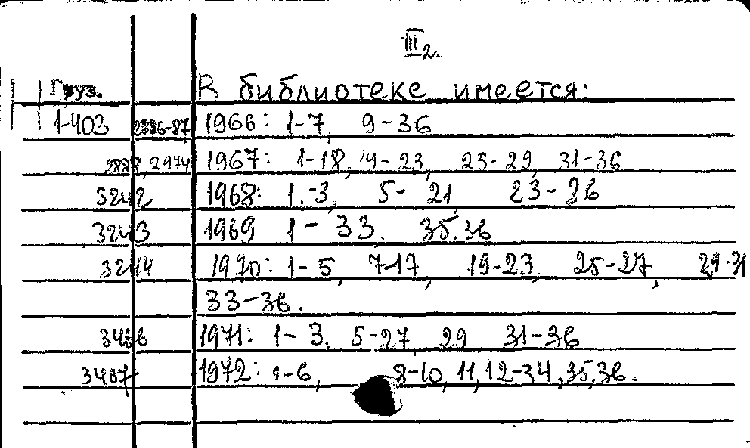 III 2.
Груз. В библиотеке имеется:
1-403 2886-87 1966: 1-7, 9-36
2974 1967: 1-18, 23, 23-29, 31-36
3242 1968: 1-3, 5-21, 23-36
3243 1969 1-33. 35.36
3244 1970: 1-5, 7-17, 19-23, 25-27, 29-31
33-36.
3486 1971: 1-3, 5-27, 29, 31-36
3487 1972: 1-6, 8-10, 11, 12-34, 35, 36.